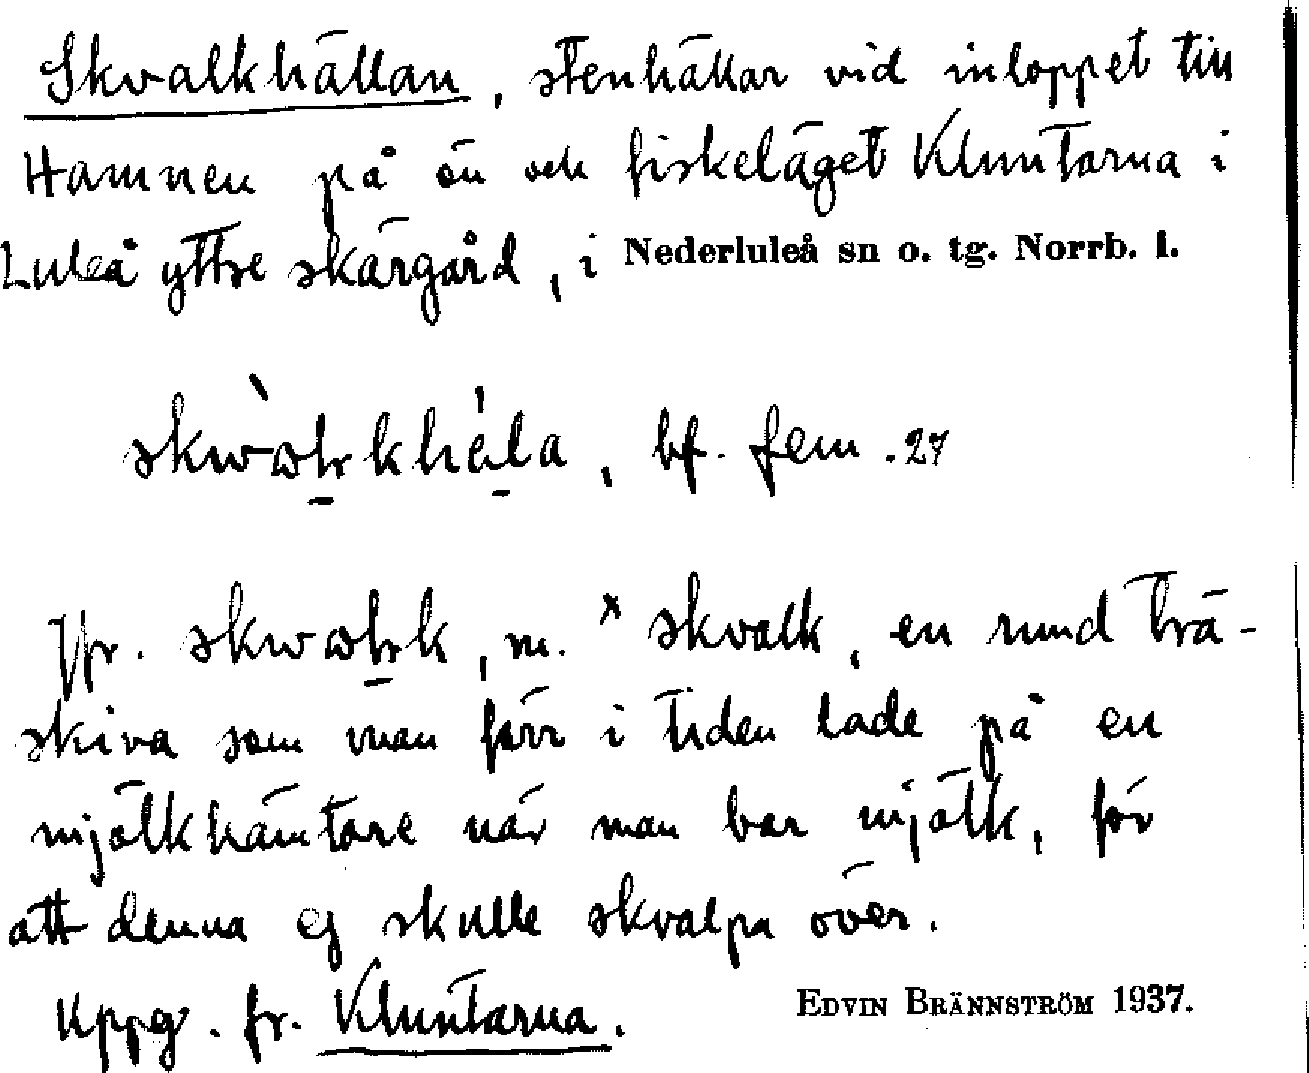 Skvalkhällan, stenhällar vid inloppet till
Hamnen på ön och fiskeläget Kluntarna i
Luleå yttre skärgård, i Nederluleå sn o. tg. Norrb. l.
bf. fem. 27
Jfr. m. * skvalk, en rund trä-
skiva som man förr i tiden lade på en
mjölkhämtare när man bar mjölk, för
att denna ej skulle skvalpa över.
Uppg. fr. Kluntarna.
EDVIN BRÄNNSTRÖM 1937.